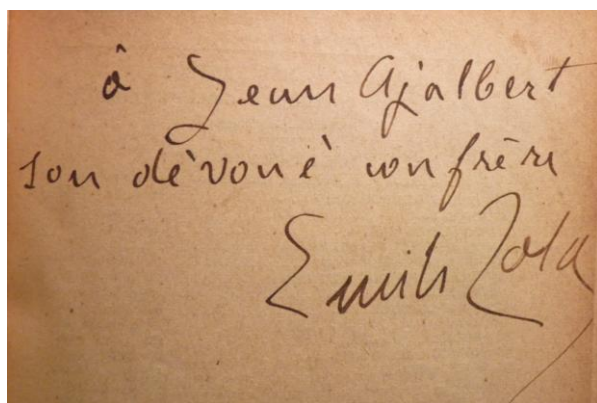 à Jean Ajalbert
son dévoué confrère
Emile Zola